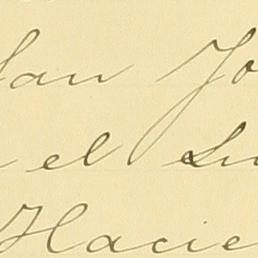 San Jo
el Su
Hacie